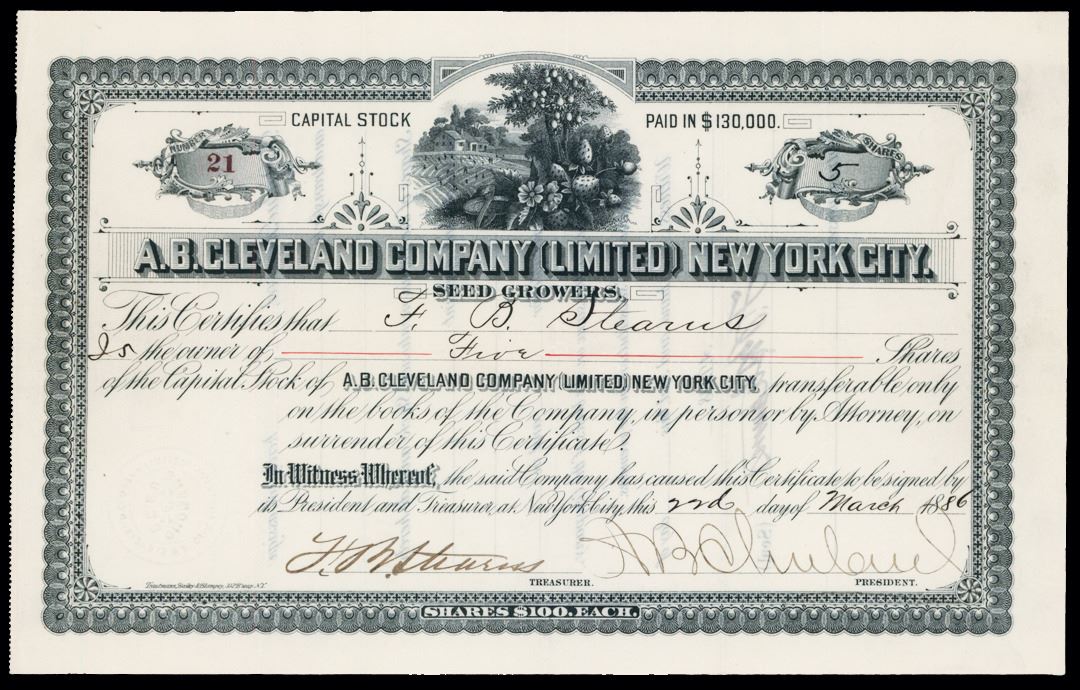 CAPITAL STOCK PAID IN $130,000.
NUMBER 21
SHARES 5
A.B. CLEVELAND COMPANY (LIMITED) NEW YORK CITY.
SEED GROWERS.
This Certifies that F. B. Stearns
Is the owner of Five Shares
of the Capital Stock of A.B. CLEVELAND COMPANY (LIMITED) NEW YORK CITY, transferable only
on the books of the Company, in person or by Attorney, on
surrender of this Certificate.
In Witness Whereof, the said Company has caused this Certificate to be signed by
its President and Treasurer, at New York City, this 22d day of March 1886
F. B. Stearns A B Cleveland
TREASURER. PRESIDENT.
SHARES $100. EACH.